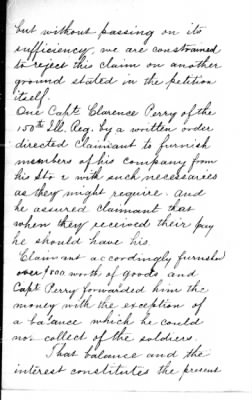 but without passing on its
sufficiency, we are constrained
to reject this claim on another
ground stated in the petition
itself.
One Capt. Clarence Perry of the
150th Ill. Reg. by a written order
directed Claimant to furnish
members of his company from
his Sto e with such necessaries
as they might require and
he assured claimant that
when they received their pay
he should have his.
Claimant accordingly furnished
over worth of goods and
Capt Perry forwarded him the
money with the exception of
a balance which he could
not collect of the soldiers.
That balance and the
interest constitutes the present